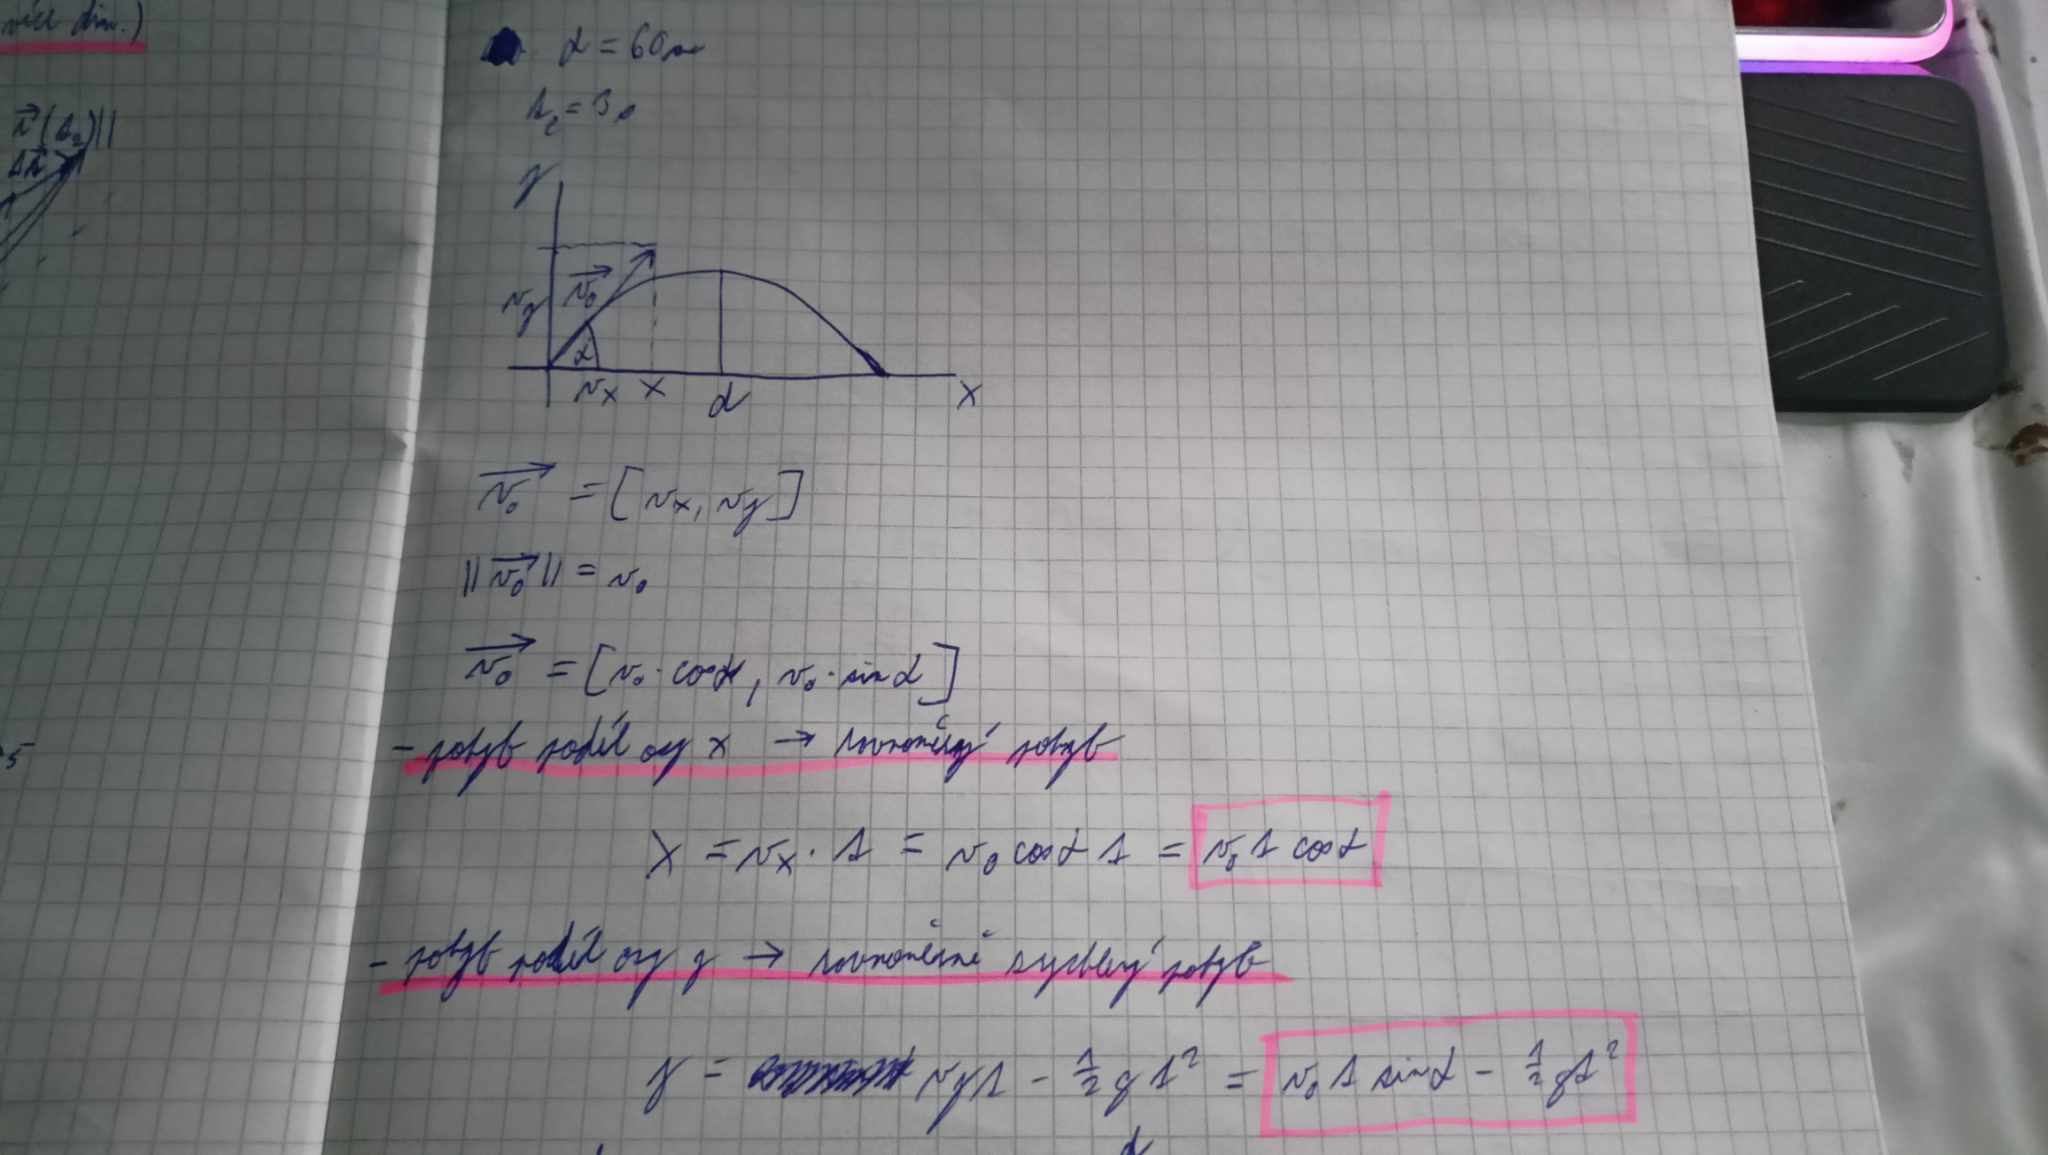 více dim.)
r⃗(t₂)||
Δr⃗
5
d = 60m
t₂ = 3s
y
v⃗₀
v_y
α
v_x x d x
v⃗₀ = [v_x, v_y]
||v⃗₀|| = v₀
v⃗₀ = [v₀ · cosα, v₀ · sinα]
- pohyb podél osy x → rovnoměrný pohyb
x = v_x · t = v₀ cosα t = v₀ t cosα
- pohyb podél osy y → rovnoměrně zrychlený pohyb
y = v_y t - ½ g t² = v₀ t sinα - ½ g t²
d